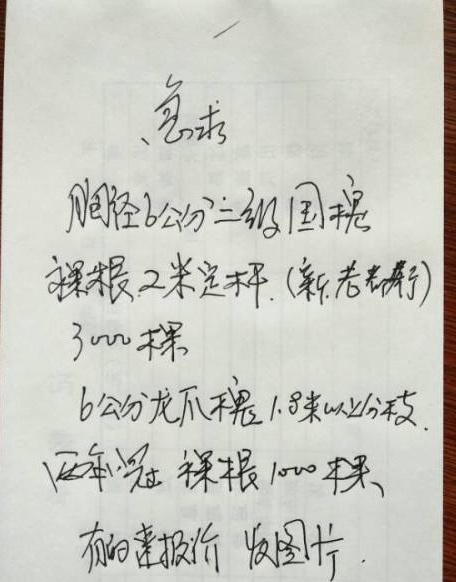 急求
胸径6公分二级国槐
裸根.2米定杆.(新.老都行)
3000棵
6公分龙爪槐1.8米以上分枝.
两年冠 裸根1000棵、
有的速报价 发图片.